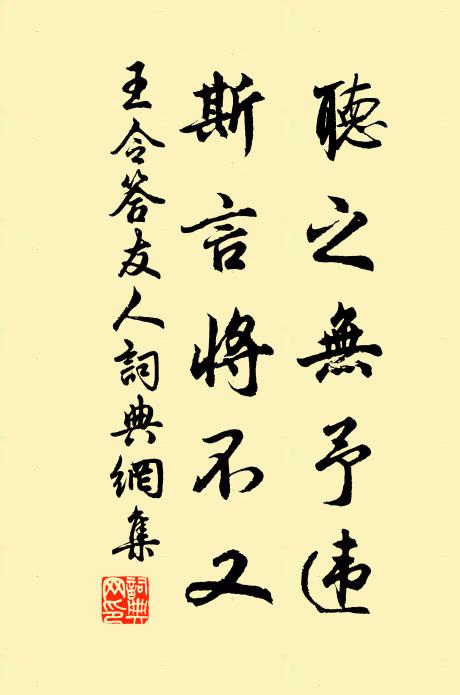 聽之無予違
斯言將不又
王令答友人詞典網集
詞典
网印